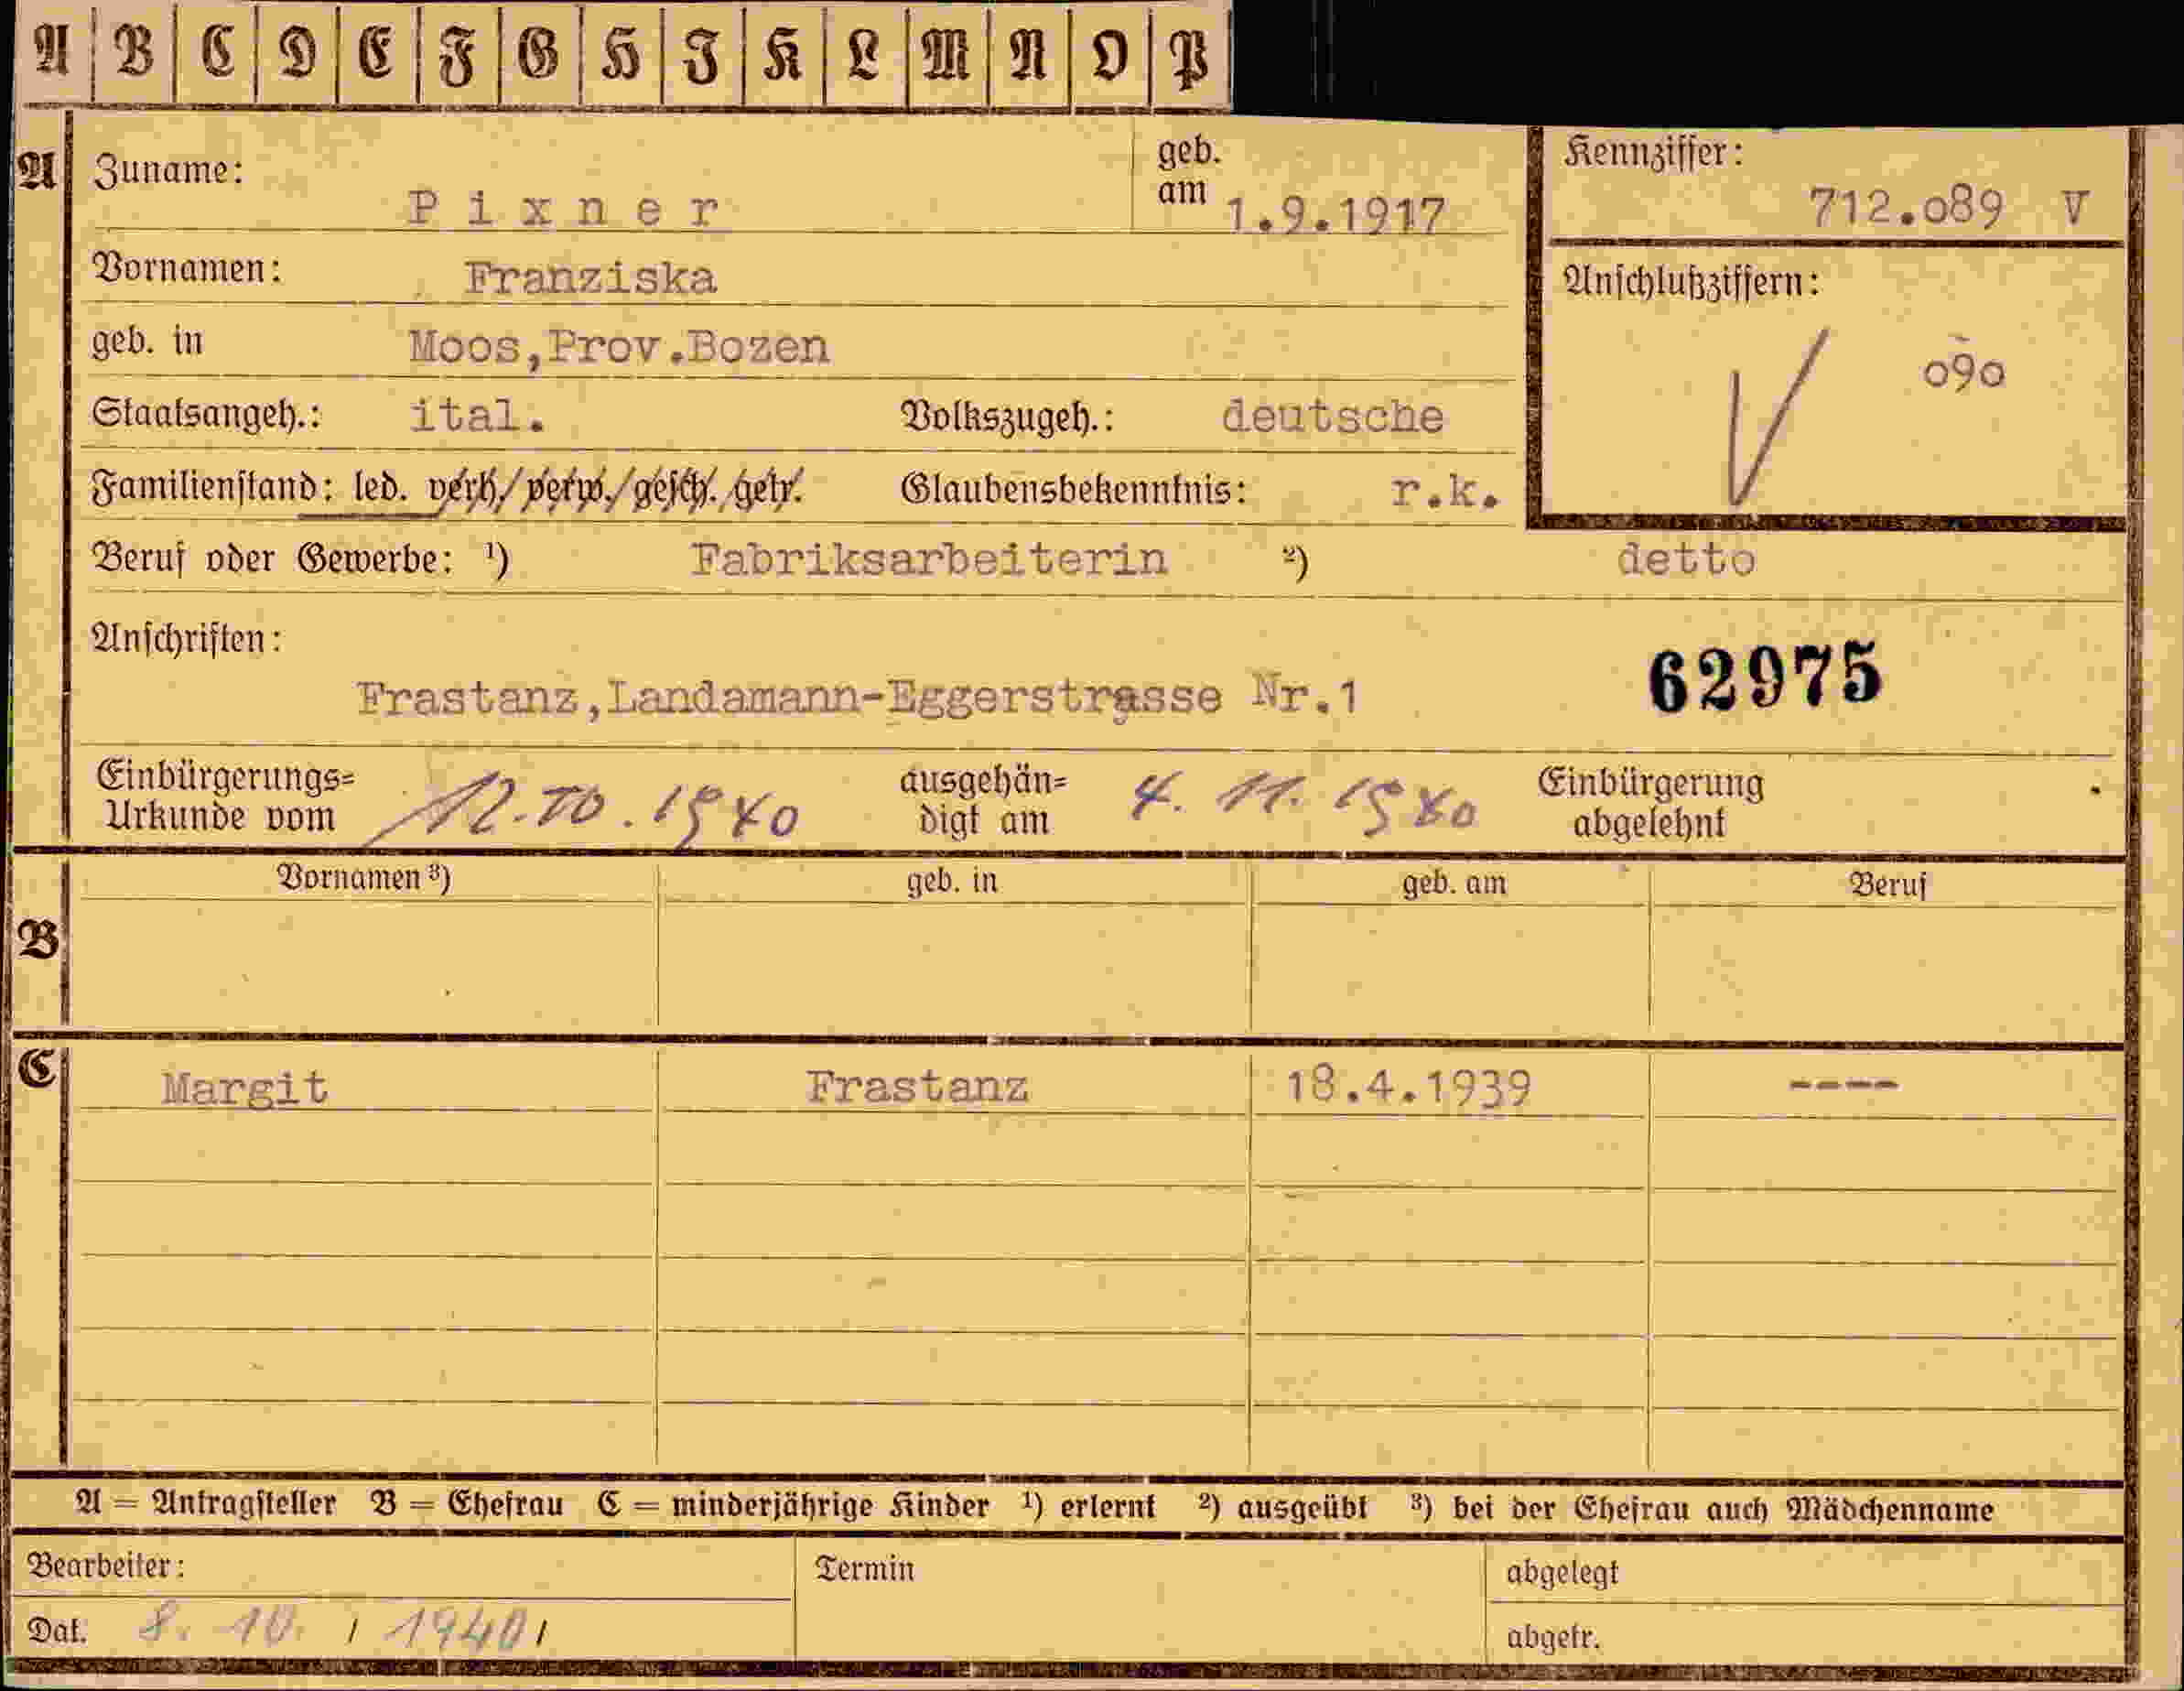 A B C D E F G H I K L M N O P
A Zuname: Pixner geb. am 1.9.1917 Kennziffer: 712.089 V
Vornamen: Franziska Anschlußziffern:
geb. in Moos,Prov.Bozen 090
Staatsangeh.: ital. Volkszugeh.: deutsche
Familienstand: led. verh./verw./gesch./getr. Glaubensbekenntnis: r.k.
Beruf oder Gewerbe: ¹) Fabriksarbeiterin ²) detto
Anschriften: 62975
Frastanz,Landamann-Eggerstrasse Nr.1
Einbürgerungs= Urkunde vom 12.10.1940 ausgehän= digt am 4. 11. 1940 Einbürgerung abgelehnt
B Vornamen ³) geb. in geb. am Beruf
C Margit Frastanz 18.4.1939 ----
A = Antragsteller B = Ehefrau C = minderjährige Kinder ¹) erlernt ²) ausgeübt ³) bei der Ehefrau auch Mädchenname
Bearbeiter: Termin abgelegt
Dat. 8. 10. / 1940 / abgetr.